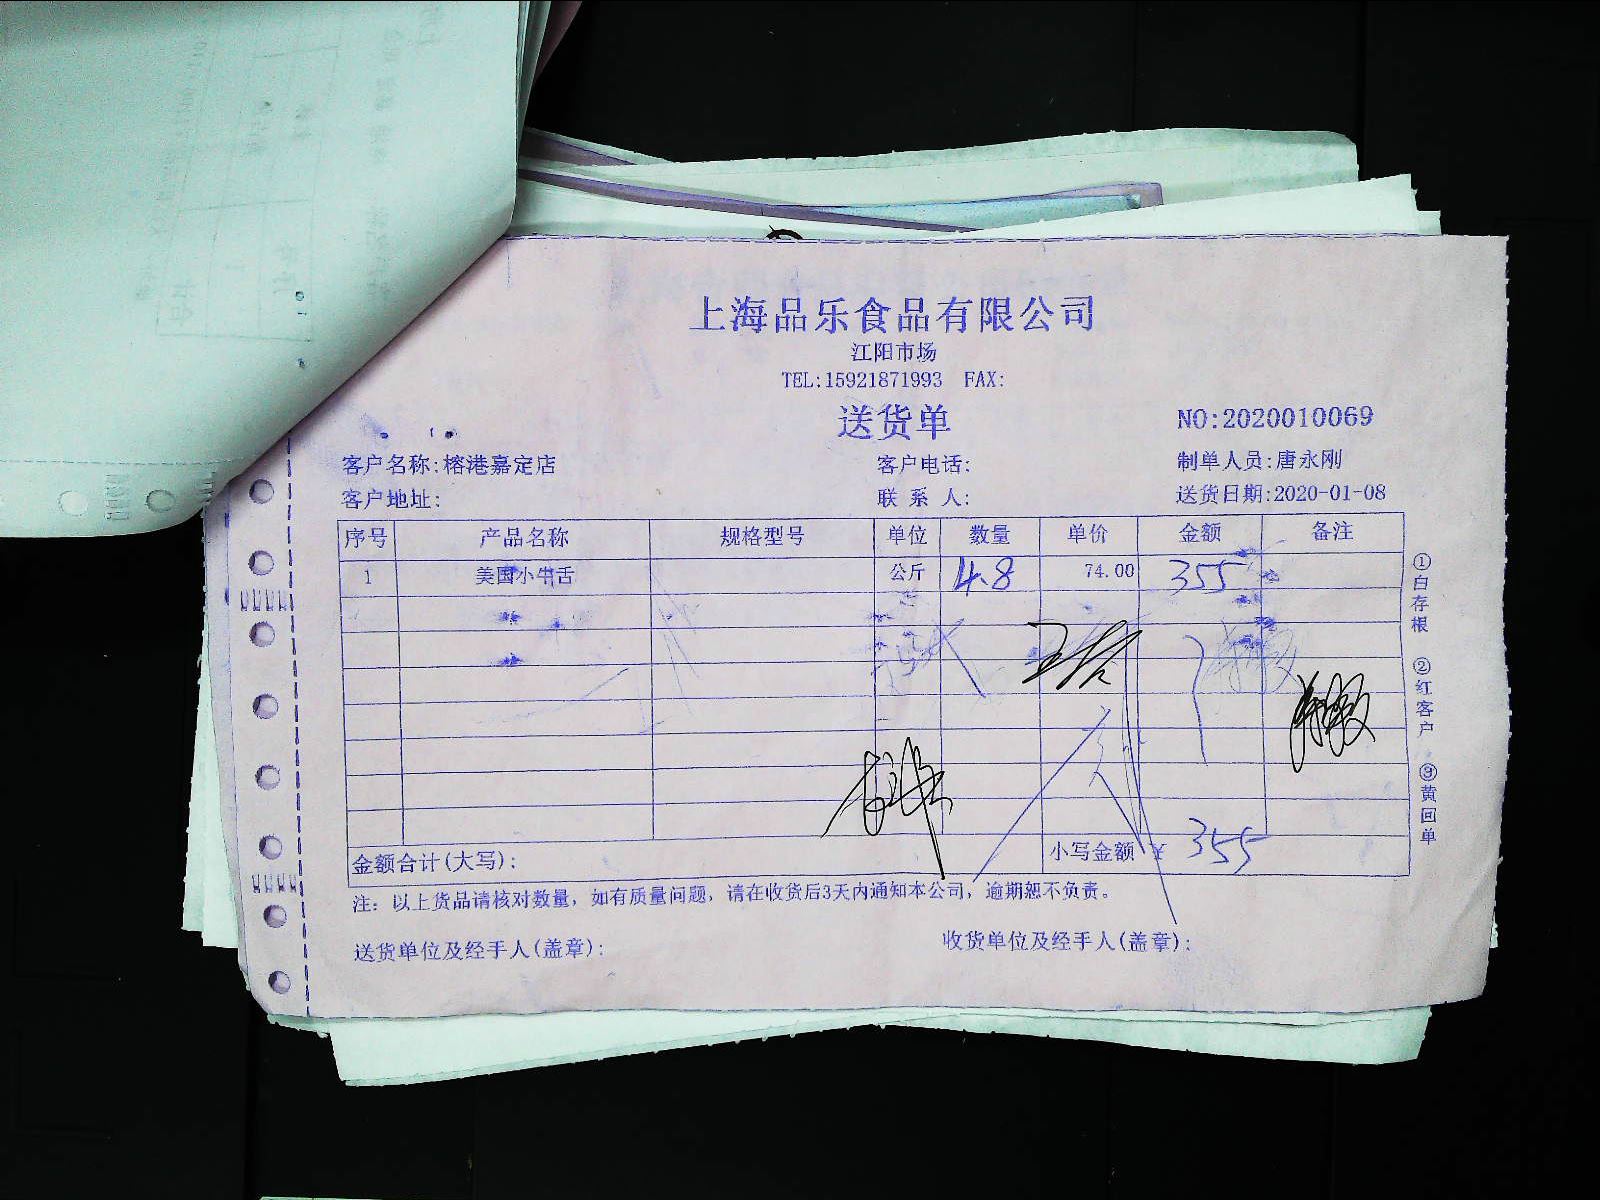 上海品乐食品有限公司
江阳市场
TEL:15921871993 FAX:
送货单
NO:2020010069
客户名称:榕港嘉定店 客户电话: 制单人员:唐永刚
客户地址: 联系人: 送货日期:2020-01-08
序号 产品名称 规格型号 单位 数量 单价 金额 备注
1 美国小牛舌 公斤 4.8 74.00 355
金额合计(大写): 小写金额 ¥ 355
注：以上货品请核对数量，如有质量问题，请在收货后3天内通知本公司，逾期恕不负责。
送货单位及经手人(盖章): 收货单位及经手人(盖章):
①白存根 ②红客户 ③黄回单